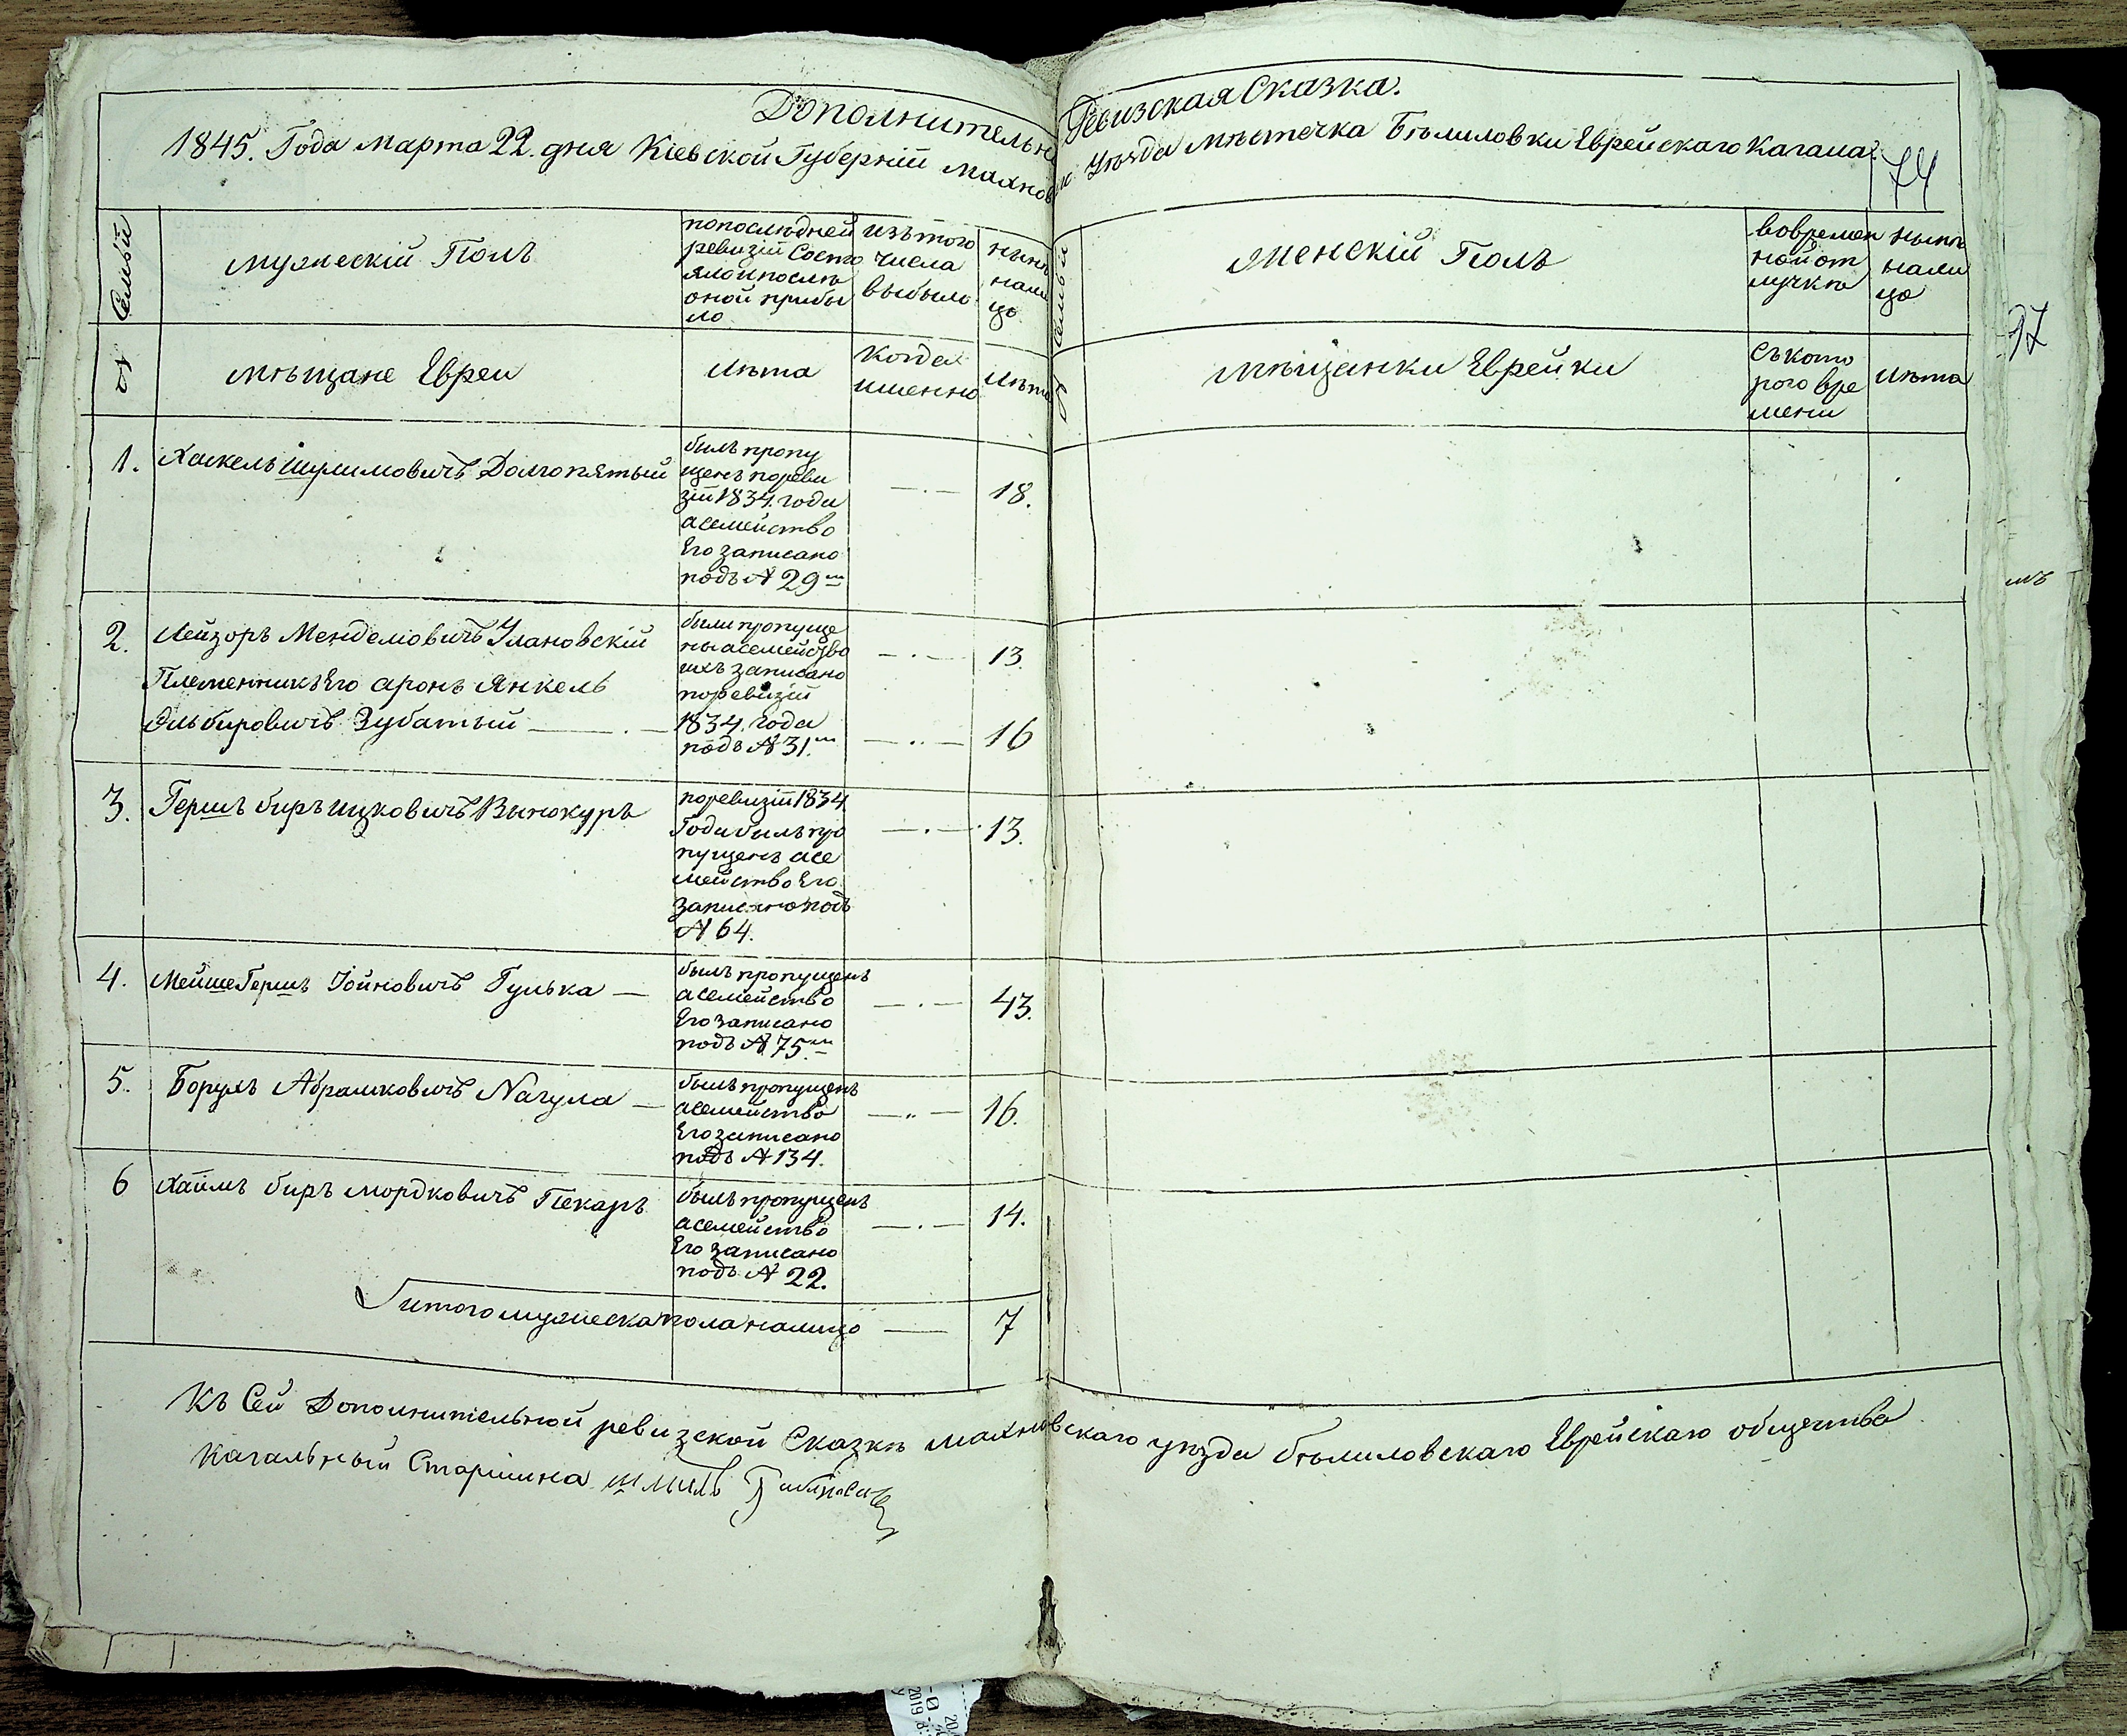 Дополнительная Ревизская Сказка.
1845. Года марта 22. дня Кіевской Губерніи Махновского Уѣзда мѣстечка Бѣлиловки Еврейскаго Кагала.
74
Семьи
мужескій Полъ
попослѣдней
ревизіи Состо
ялоипослѣ
оной прибы
ло
изътого
числа
выбыло
нынѣ
нали
цо
Семьи
женскій Полъ
вовремен
нойот
лучкѣ
нынѣ
нали
цо
97
№
мѣщане Евреи
лѣта
Когда
именно
лѣта
№
мѣщанки Еврейки
Съкото
раго вре
мени
лѣта
1.
Хаскель Шулимовичъ Долгопятый
былъ пропу
щенъ пореви
зіи 1834. года
асемейство
Его записано
подъ № 29ᵐ
18.
мъ
2.
Лейзоръ Менделіовичъ Улановскій
Племенникъ Его аронъ Янкель
Эльбировичъ Зубатый
были пропуще
ны асемейство
ихъ записано
поревизіи
1834. года
подъ № 31.ᵐ
13.
16
3.
Гершъ биръ ицковичъ Винокуръ
поревизіи 1834.
Года былъ про
пущенъ асе
мейство Его
записано подъ
№ 64.
13.
4.
Мейше Гершъ Іойновичъ Гулька
былъ пропущенъ
асемейство
Его записано
подъ № 75.ᵐ
43.
5.
Борухъ Абрамковичъ Nагула
былъ пропущенъ
асемейство
Его записано
подъ № 134.
16.
6
Хаимъ биръ мордковичъ Пекаръ
былъ пропущенъ
асемейство
Его записано
подъ № 22.
14.
итого мужеска пола налицо
7
Къ Сей Дополнительной ревизской Сказкѣ махновскаго уѣзда бѣлиловскаго Еврейскаго общества
Кагальный Старшина шмиль